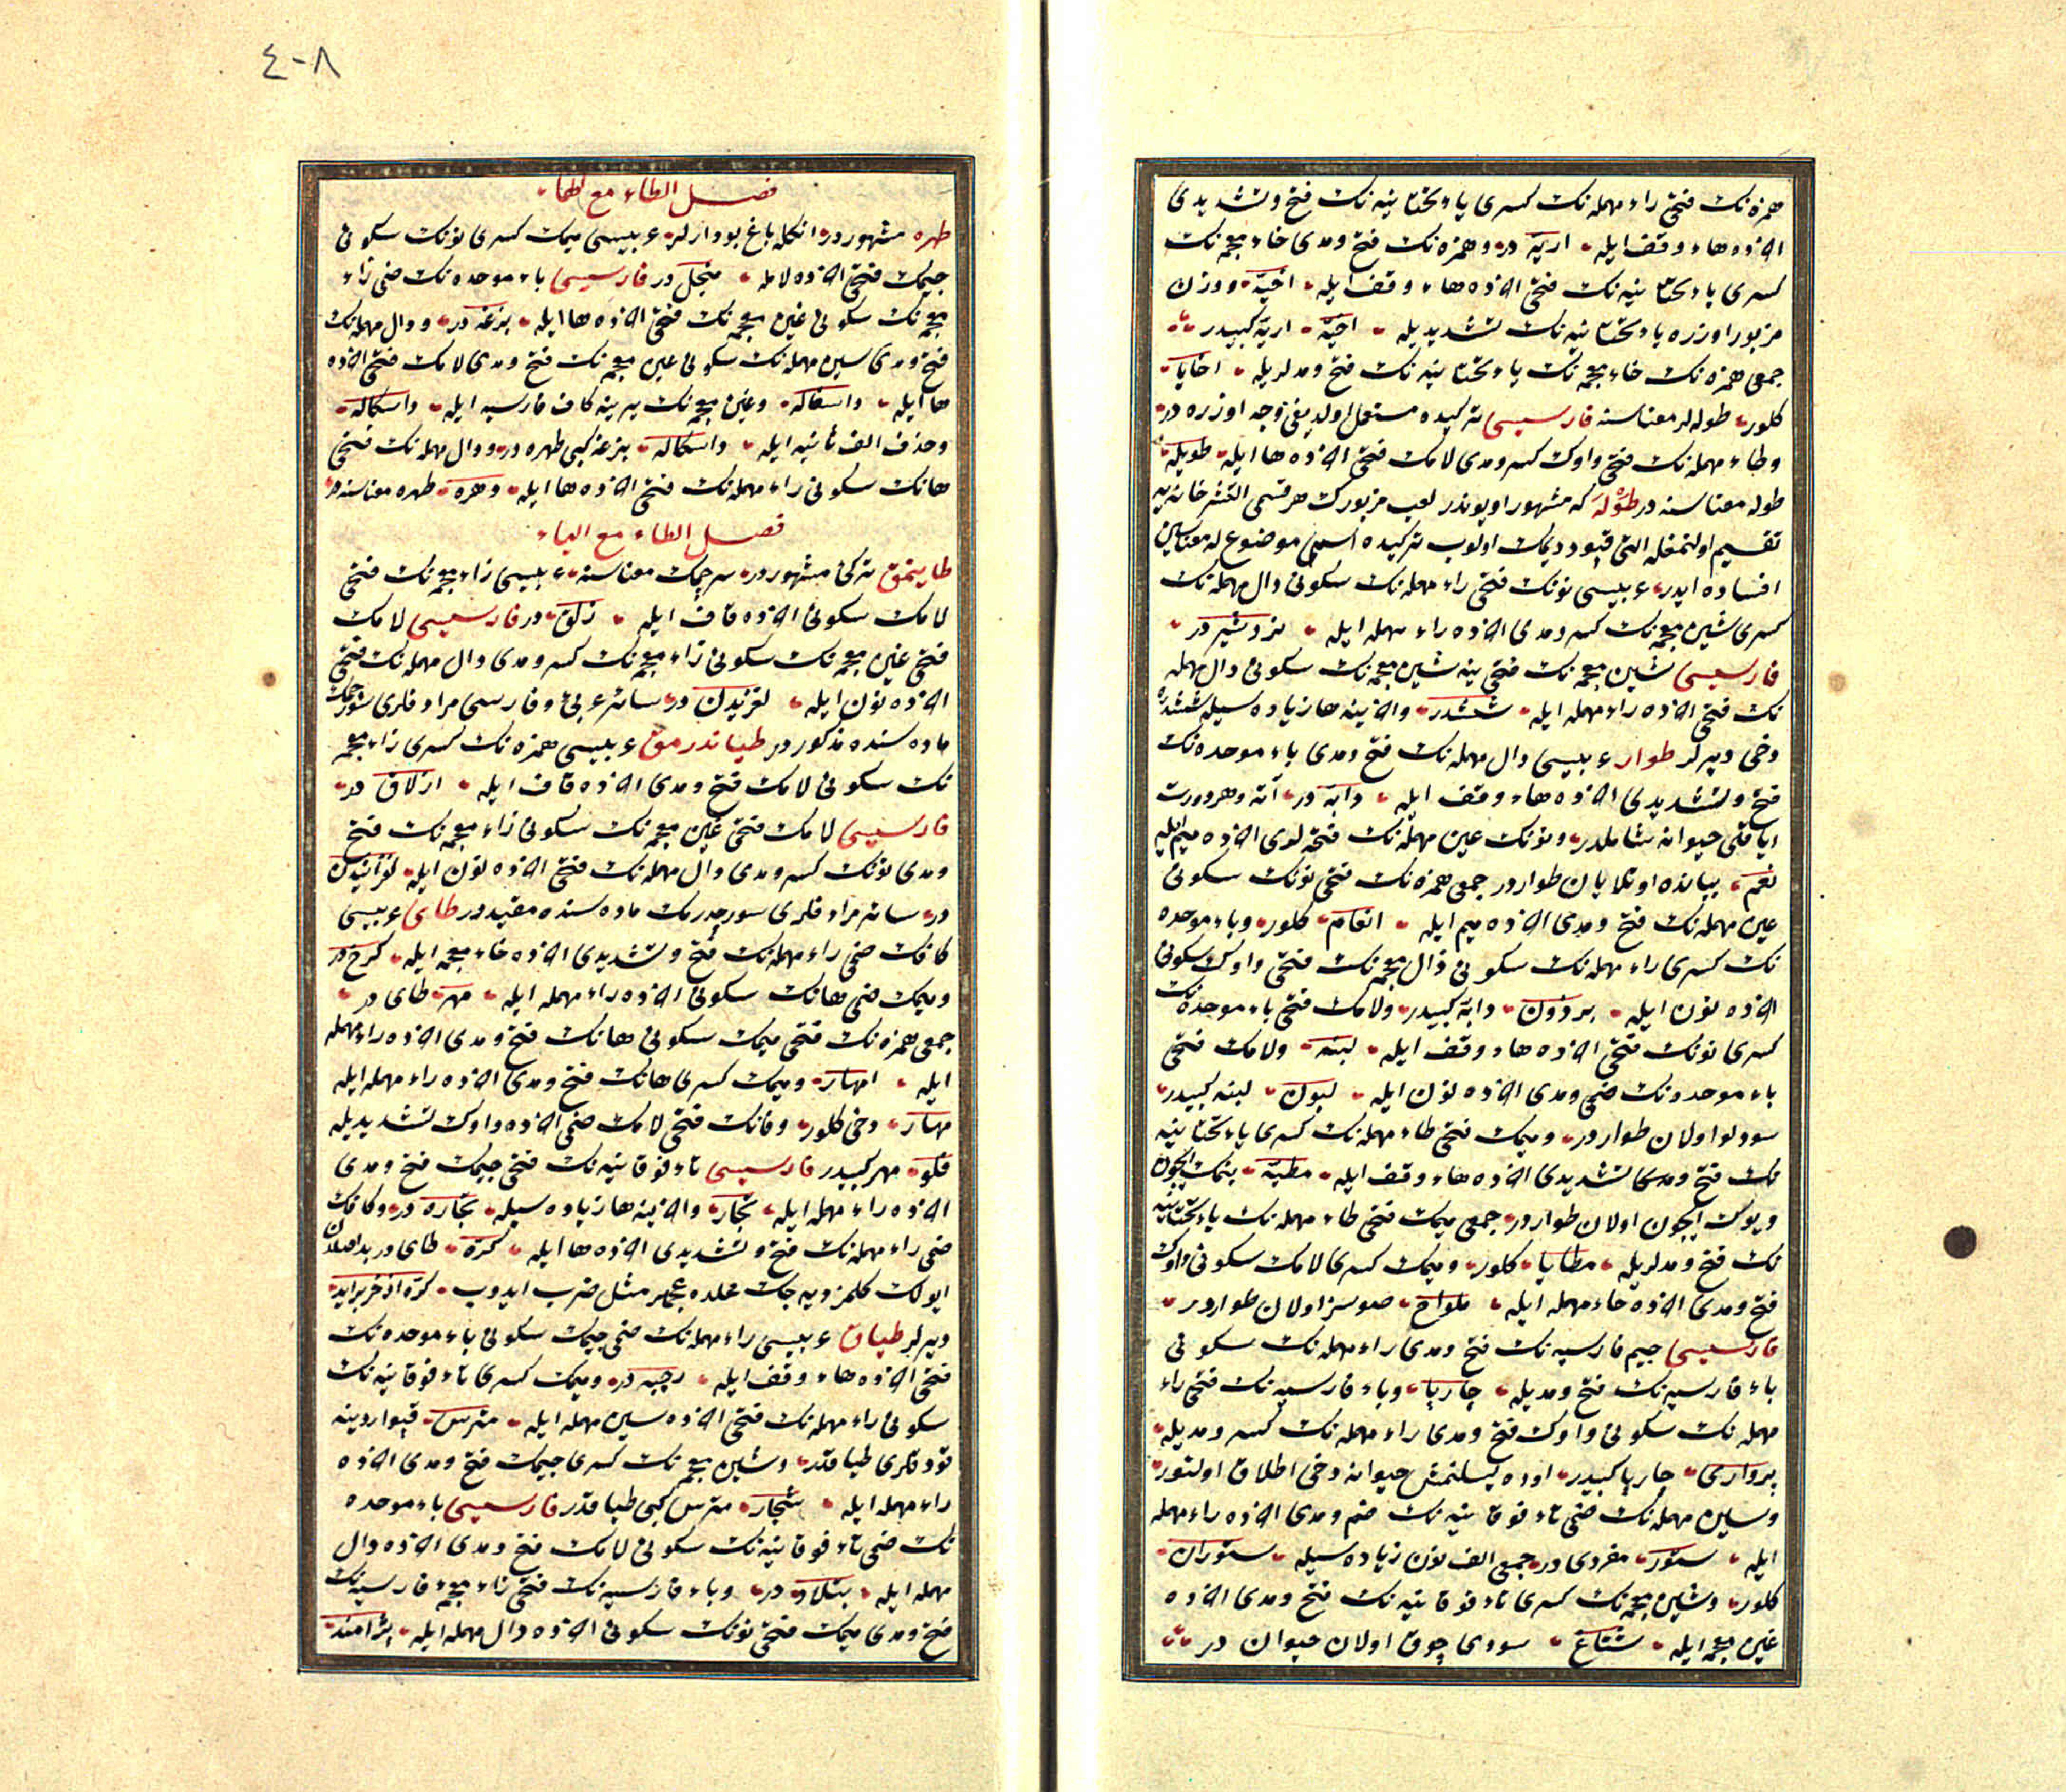 همزه نك فتحی راء مهمله نك كسری یاء تحتانیه نك فتح و تشدیدی
آخرده هاء وقف ایله اریّه در و همزه نك فتح و مدی خاء معجمه نك
كسری یاء تحتانیه نك فتحی آخرده هاء وقف ایله اخیّه و وزن
مزبور اوزره یاء تحتانیه نك تشدیدیله اخیّه اریّه كبیدر
جمعی همزه نك خاء معجمه نك یاء تحتانیه نك فتح و مدلریله اخایا
كلور طوله لر معناسنه فارسیسی تركیده مستعمل اولدیغی وجه اوزره در
و طاء مهمله نك فتحی واوك كسر و مدی لامك فتحی آخرده ها ایله طویله
طوله معناسنه در طوله كه مشهور اویوندر لعب مزبورك هر قسمی التشر خانه یه
تقسیم اولنمغله التی قپو دیمك اولوب تركیده اسمی موضوع له معناسین
افاده ایدر عربیسی نونك فتحی راء مهمله نك سكونی دال مهمله نك
كسری شین معجمه نك كسر و مدی آخرده راء مهمله ایله نردشیر در
فارسیسی شین معجمه نك فتحی ینه شین معجمه نك سكونی دال مهمله
نك فتحی آخرده راء مهمله ایله ششدر و آخرینه ها زیاده سیله ششدره
دخی دیرلر طوار عربیسی دال مهمله نك فتح و مدی باء موحده نك
فتح و تشدیدی آخرده هاء وقف ایله دابه در آته و هر دورت
ایاقلی حیوانه شاملدر و نونك عین مهمله نك فتحه لری آخرده میم ایله
نعم یبانده اوتلایان طواردر جمعی همزه نك فتحی نونك سكونی
عین مهمله نك فتح و مدی آخرده میم ایله انعام كلور و باء موحده
نك كسری راء مهمله نك سكونی ذال معجمه نك فتحی واوك سكونی
آخرده نون ایله برذون دابه كبیدر و لامك فتحی باء موحده نك
كسری نونك فتحی آخرده هاء وقف ایله لبنه و لامك فتحی
باء موحده نك ضمی و مدی آخرده نون ایله لبون لبنه كبیدر
سودلو اولان طواردر و میمك فتحی طاء مهمله نك كسری یاء تحتانیه
نك فتح و مدی تشدیدی آخرده هاء وقف ایله مطیّه بنمك ایچون
و یوك ایچون اولان طواردر جمعی میمك فتحی طاء مهمله نك یاء تحتانیه
نك فتح و مدلریله مطایا كلور و میمك كسری لامك سكونی واوك
فتح و مدی آخرده حاء مهمله ایله ملواح صوسز اولان طواردر
فارسیسی جیم فارسیه نك فتح و مدی راء مهمله نك سكونی
باء فارسیه نك فتح و مدیله چارپا و باء فارسیه نك فتحی راء
مهمله نك سكونی واوك فتح و مدی راء مهمله نك كسر و مدیله
پرواری چارپا كبیدر اوده بسلنمش حیوانه دخی اطلاق اولنور
و سین مهمله نك ضمی تاء فوقانیه نك ضم و مدی آخرده راء مهمله
ایله ستور مفردی در جمعی الف نون زیاده سیله ستوران
كلور و شین معجمه نك كسری تاء فوقانیه نك فتح و مدی آخرده
غین معجمه ایله شتاغ سودی چوق اولان حیوان در
٤٠٨
فصل الطاء مع الهاء
طهره مشهوردر انكله باغ بودارلر عربیسی میمك كسری نونك سكونی
جیمك فتحی آخرده لامله منجل در فارسیسی باء موحده نك ضمی زاء
معجمه نك سكونی غین معجمه نك فتحی آخرده ها ایله بزغه در و دال مهمله نك
فتح و مدی سین مهمله نك سكونی غین معجمه نك فتح و مدی لامك فتحی آخرده
ها ایله داسغاله و غین معجمه نك یرینه كاف فارسیه ایله داسگاله
و حذف الف ثانیه ایله داسگاله بزغه كبی طهره در و دال مهمله نك فتحی
هانك سكونی راء مهمله نك فتحی آخرده ها ایله دهره طهره معناسنه در
فصل الطاء مع الیاء
طاینمق تركی مشهوردر سرچمك معناسنه عربیسی زاء معجمه نك فتحی
لامك سكونی آخرده قاف ایله زلق در فارسیسی لامك
فتحی غین معجمه نك سكونی زاء معجمه نك كسر و مدی دال مهمله نك فتحی
آخرده نون ایله لغزیدن در سائر عربی و فارسی مرادفلری سورچمك
ماده سنده مذكوردر طیاندرمق عربیسی همزه نك كسری زاء معجمه
نك سكونی لامك فتح و مدی آخرده قاف ایله ازلاق در
فارسیسی لامك فتحی غین معجمه نك سكونی زاء معجمه نك فتح
و مدی نونك كسر و مدی دال مهمله نك فتحی آخرده نون ایله لغزانیدن
در سائر مرادفلری سورچدرمك ماده سنده مقیددر طای عربیسی
كافك ضمی راء مهمله نك فتح و تشدیدی آخرده خاء معجمه ایله كرخ در
و میمك ضمی هانك سكونی آخرده راء مهمله ایله مهر طای در
جمعی همزه نك فتحی میمك سكونی هانك فتح و مدی آخرده راء مهمله
ایله امهار و میمك كسری هانك فتح و مدی آخرده راء مهمله ایله
مهار دخی كلور و فانك فتحی لامك ضمی آخرده واوك تشدیدیله
فلو مهر كبیدر فارسیسی تاء فوقانیه نك فتحی جیمك فتح و مدی
آخرده راء مهمله ایله تجار و آخرینه ها زیاده سیله تجاره در و كافك
ضمی راء مهمله نك فتح و تشدیدی آخرده ها ایله كره طای در
ایولك كلمز دیه جك محلده عجملر مثل ضرب ایدوب كره از خر براید
دیرلر طیاق عربیسی راء مهمله نك ضمی جیمك سكونی باء موحده نك
فتحی آخرده هاء وقف ایله رجبه در و میمك كسری تاء فوقانیه نك
سكونی راء مهمله نك فتحی آخرده سین مهمله ایله مترس قپو اردینه
قودقلری طیاقدر و شین معجمه نك كسری جیمك فتح و مدی آخرده
راء مهمله ایله شجار مترس كبی طیاقدر فارسیسی باء موحده
نك ضمی تاء فوقانیه نك سكونی لامك فتح و مدی آخرده دال
مهمله ایله بتلاد در و باء فارسیه نك فتحی زاء معجمه فارسیه نك
فتح و مدی میمك فتحی نونك سكونی آخرده دال مهمله ایله پژامند